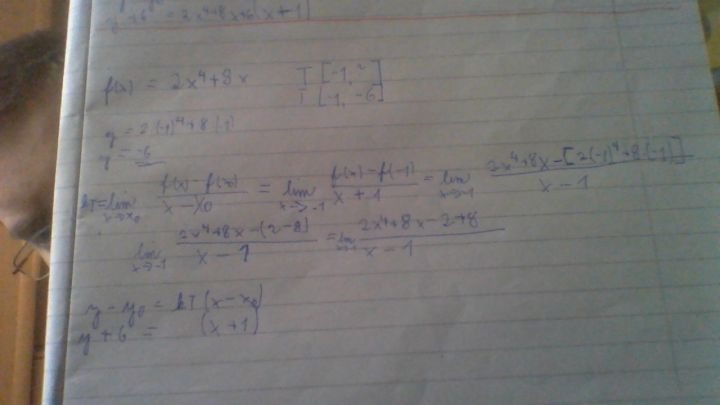 y + 6 = 2x⁴+8x+6(x+1)
f(x) = 2x⁴+8x T [-1, ²]
T [-1, -6]
y = 2(-1)⁴+8(-1)
y = -6
kT = lim x→x₀ f(x)-f(x₀) / x-x₀ = lim x→-1 f(x)-f(-1) / x+1 = lim x→-1 2x⁴+8x-[2(-1)⁴+8(-1)] / x-1
lim x→-1 2x⁴+8x-(2-8) / x-1 = lim x→-1 2x⁴+8x-2+8 / x-1
y-y₀ = kT(x-x₀)
y+6 = (x+1)